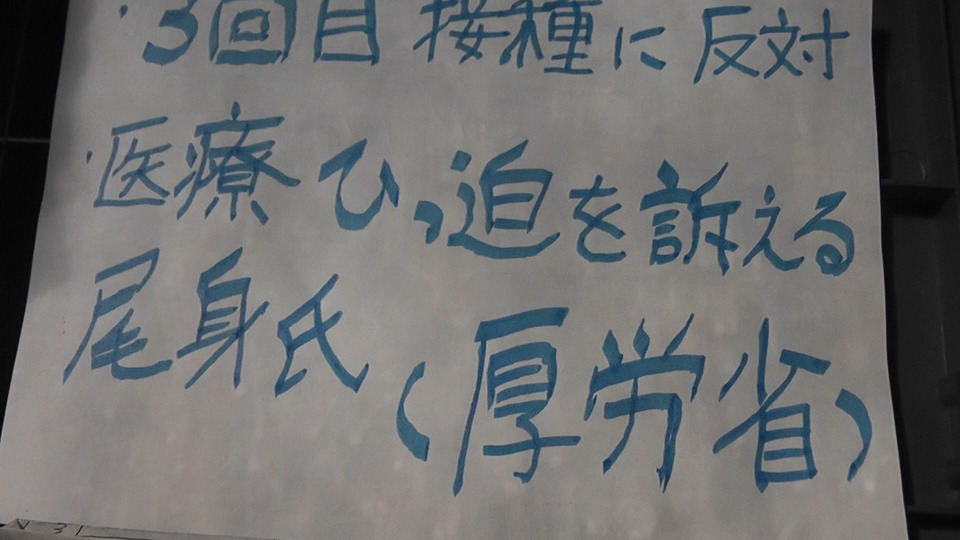 ・3回目接種に反対
・医療ひっ迫を訴える
尾身氏(厚労省)